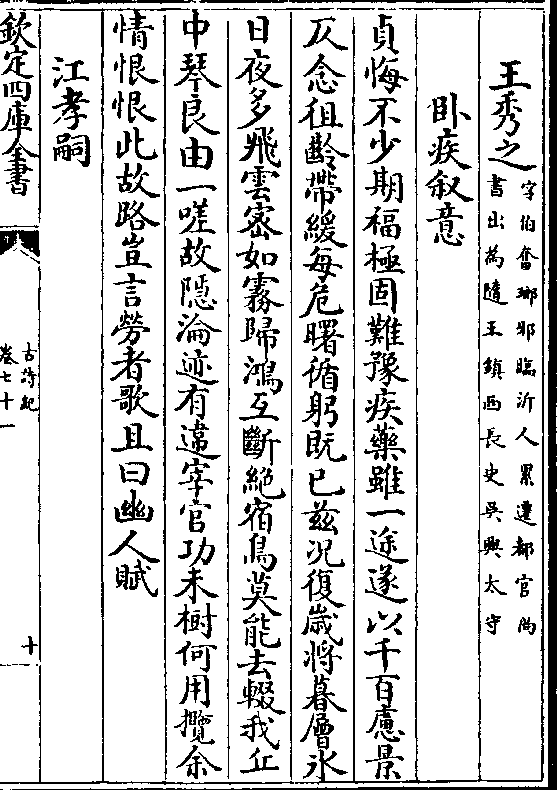 王秀之
字伯奮琅邪臨沂人累遷都官尚
書出為隨王鎮西長史吳興太守
卧疾叙意
貞悔不少期福極固難豫疾藥雖一途遂以千百慮景
仄念徂齡帶緩每危曙循躬既已兹况復歲將暮層氷
日夜多飛雲密如霧歸鴻互斷絶宿鳥莫能去輟我丘
中琴良由一嗟故隱淪迹有違宰官功未樹何用攬余
情恨恨此故路豈言勞者歌且曰幽人賦
江孝嗣
欽定四庫全書
古詩紀
卷七十一
十